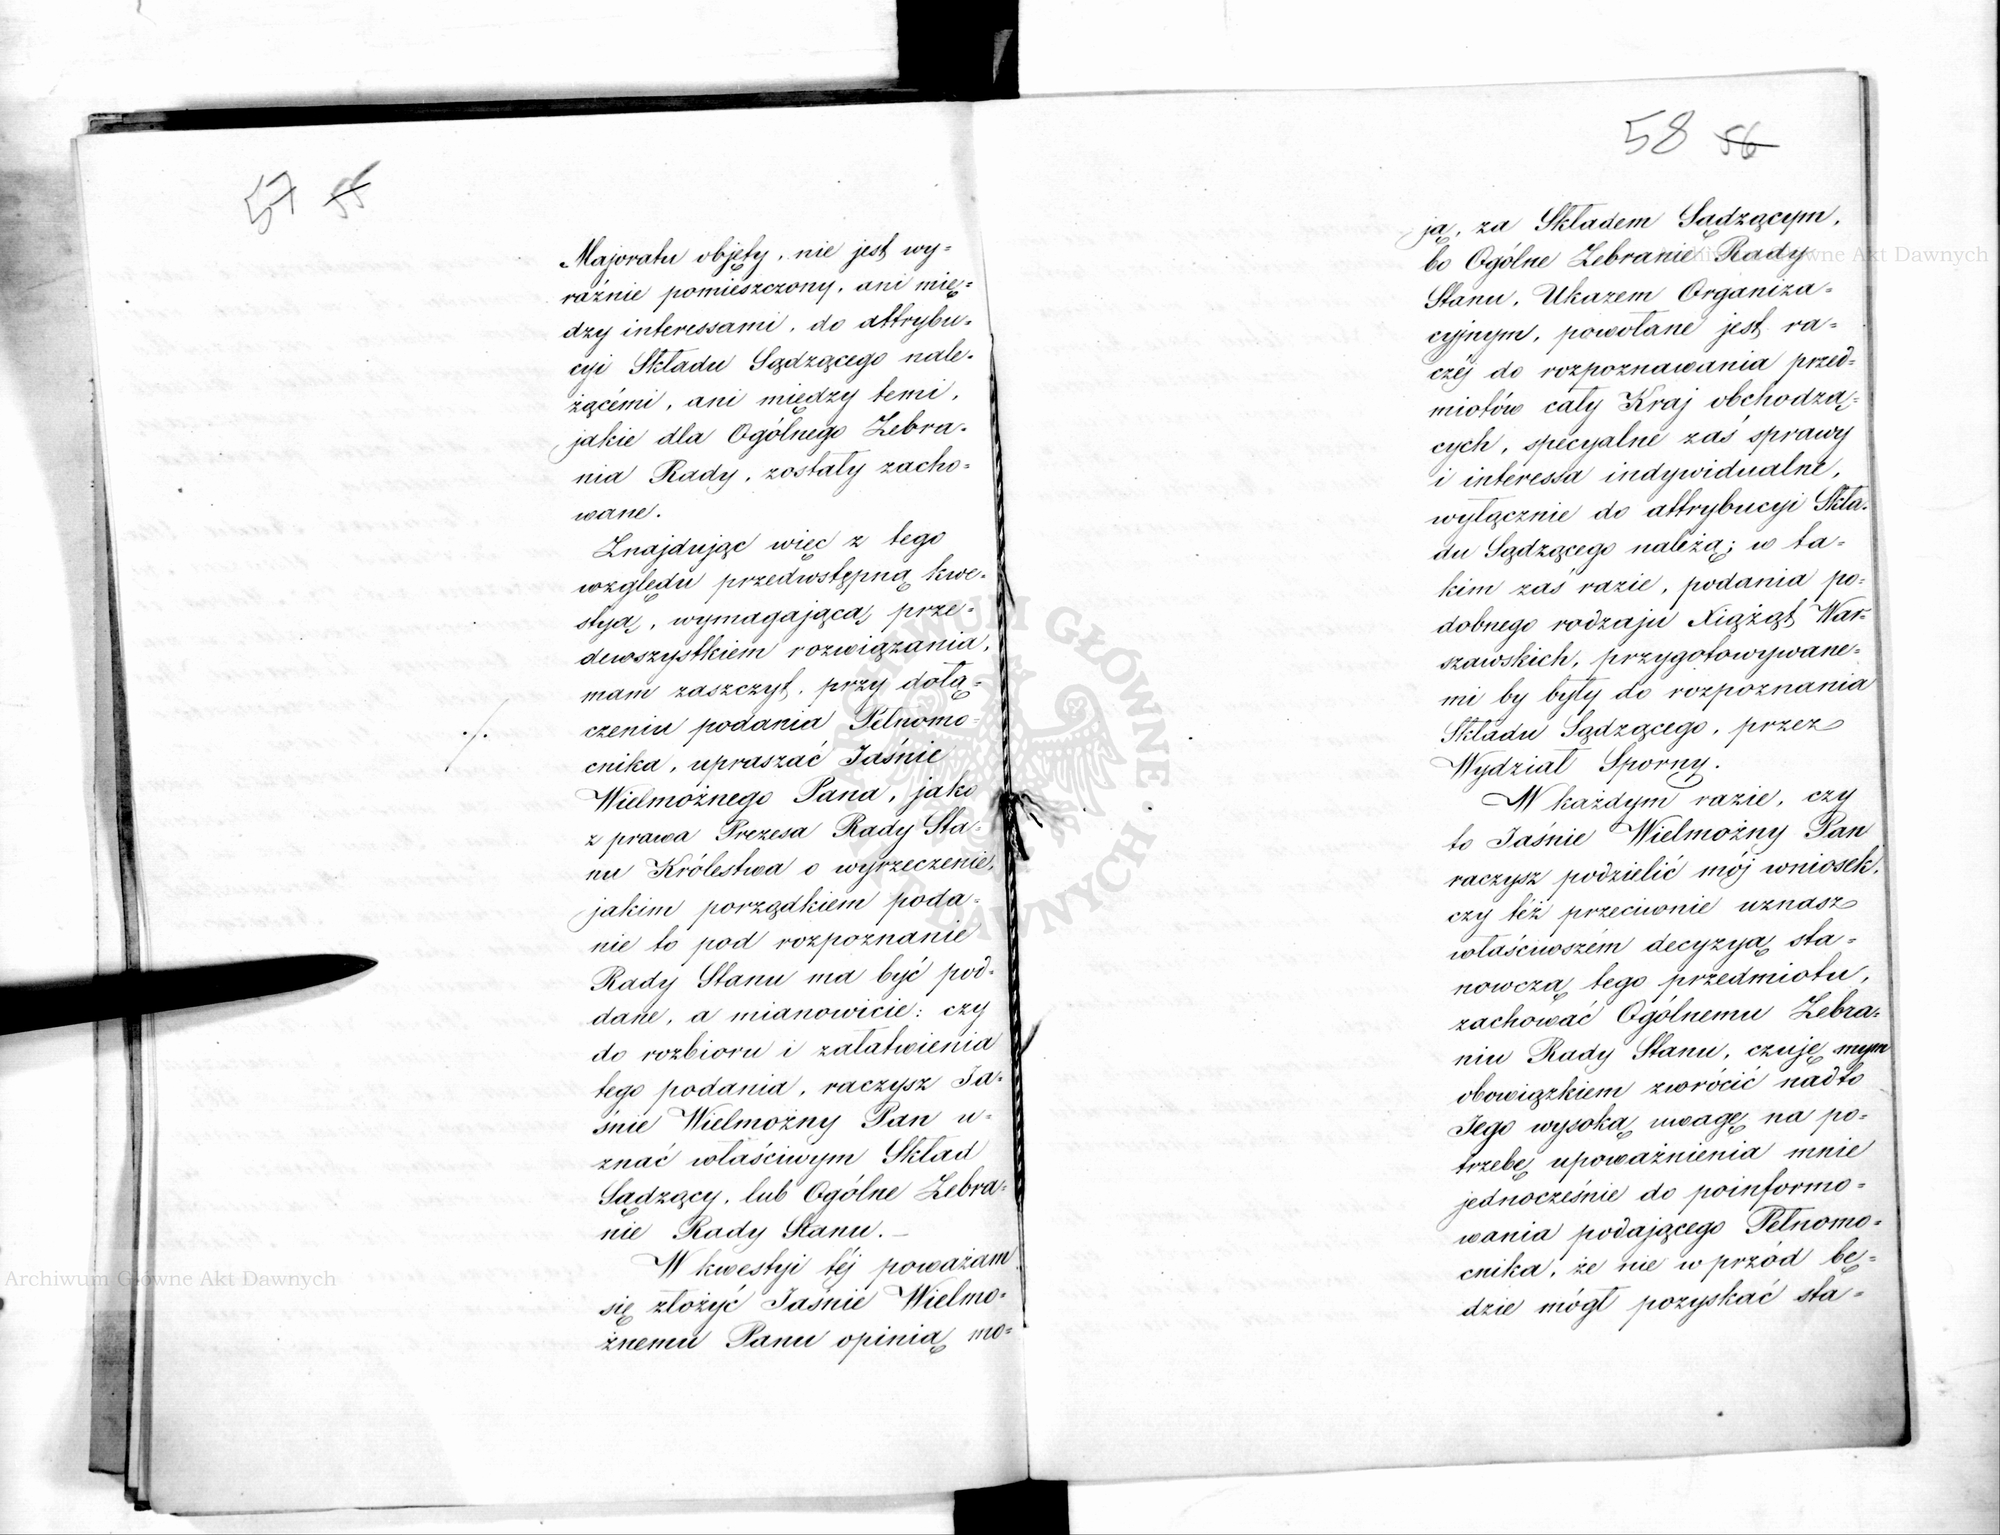 57 55
Majoratu objęty, nie jest wy=
raźnie pomieszczony, ani mię=
dzy interessami, do attrybu=
cyi Składu Sądzącego nale=
żącémi, ani między temi,
jakie dla Ogólnego Zebra=
nia Rady, zostały zacho=
wane.
Znajdując więc z tego
względu przedwstępną kwe=
styą, wymagającą prze=
dewszystkiem rozwiązania,
mam zaszczyt, przy dołą=
czeniu podania Pełnomo=
cnika, upraszać Jaśnie
Wielmożnego Pana, jako
z prawa Prezesa Rady Sta=
nu Królestwa o wyrzeczenie,
jakim porządkiem poda=
nie to pod rozpoznanie
Rady Stanu ma być pod=
dane, a mianowicie: czy
do rozbioru i załatwienia
tego podania, raczysz Ja=
śnie Wielmożny Pan u=
znać właściwym Skład
Sądzący, lub Ogólne Zebra=
nie Rady Stanu. —
W kwestyi téj poważam
się złożyć Jaśnie Wielmo=
żnemu Panu opinią mo=
·/·
58 56
ją, za Składem Sądzącym,
bo Ogólne Zebranie Rady
Stanu, Ukazem Organiza=
cyjnym, powołane jest ra=
czéj do rozpoznawania przed=
miotów cały Kraj obchodzą=
cych, specyalne zaś sprawy
i interessa indywidualne,
wyłącznie do attrybucyi Skła=
du Sądzącego należą; w ta=
kim zaś razie, podania po=
dobnego rodzaju Xiążąt War=
szawskich, przygotowywane=
mi by były do rozpoznania
Składu Sądzącego, przez
Wydział Sporny.
W każdym razie, czy
to Jaśnie Wielmożny Pan
raczysz podzielić mój wniosek,
czy téż przeciwnie uznasz
właściwszém decyzyą sta=
nowczą tego przedmiotu,
zachować Ogólnemu Zebra=
niu Rady Stanu, czuję mym
obowiązkiem zwrócić nadto
Jego wysoką uwagę na po=
trzebę upoważnienia mnie
jednocześnie do poinformo=
wania podającego Pełnomo=
cnika, że nie wprzód bę=
dzie mógł pozyskać sta=
Archiwum Główne Akt Dawnych
Archiwum Główne Akt Dawnych
ARCHIWUM GŁÓWNE AKT DAWNYCH